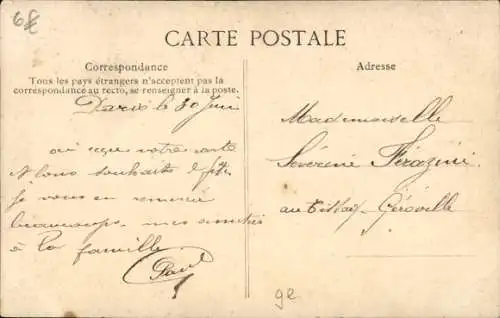 6€
CARTE POSTALE
Correspondance
Tous les pays étrangers n'acceptent pas la
correspondance au recto, se renseigner à la poste.
Paris le 30 Juin
votre carte
souhaits de fête
je vous en remercie
beaucoup. mes amitiés
à la famille
Paul
Adresse
Mademoiselle
Séverine Ferazini
au Géroville
ge